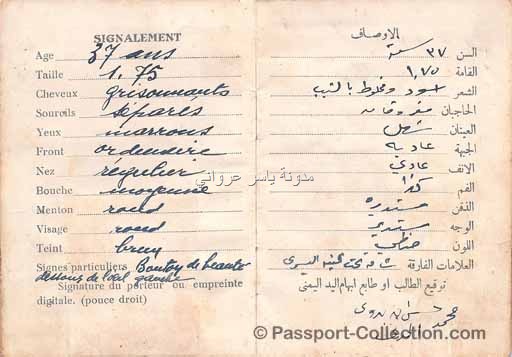 SIGNALEMENT
Age 37 ans
Taille 1.75
Cheveux grisonnants
Sourcils séparés
Yeux marrons
Front ordendire
Nez régulier
Bouche moyenne
Menton rond
Visage rond
Teint brun
Signes particuliers Bouton de beauté
dessous de l'oeil gauche
Signature du porteur ou empreinte
digitale. (pouce droit)
الاوصاف
السن ٣٧ سنة
القامة ١,٧٥
الشعر اسود ومخلوط بالشيب
الحاجبان مفروقان
العينان
الجبهة عادية
الانف عادي
الفم كذا
الذقن مستديره
الوجه مستدير
اللون حنطي
العلامات الفارقة شامة تحت عينه اليسرى
توقيع الطالب او طابع ابهام اليد اليمنى
محمد
مدونة ياسر عرواني
© Passport-Collection.com